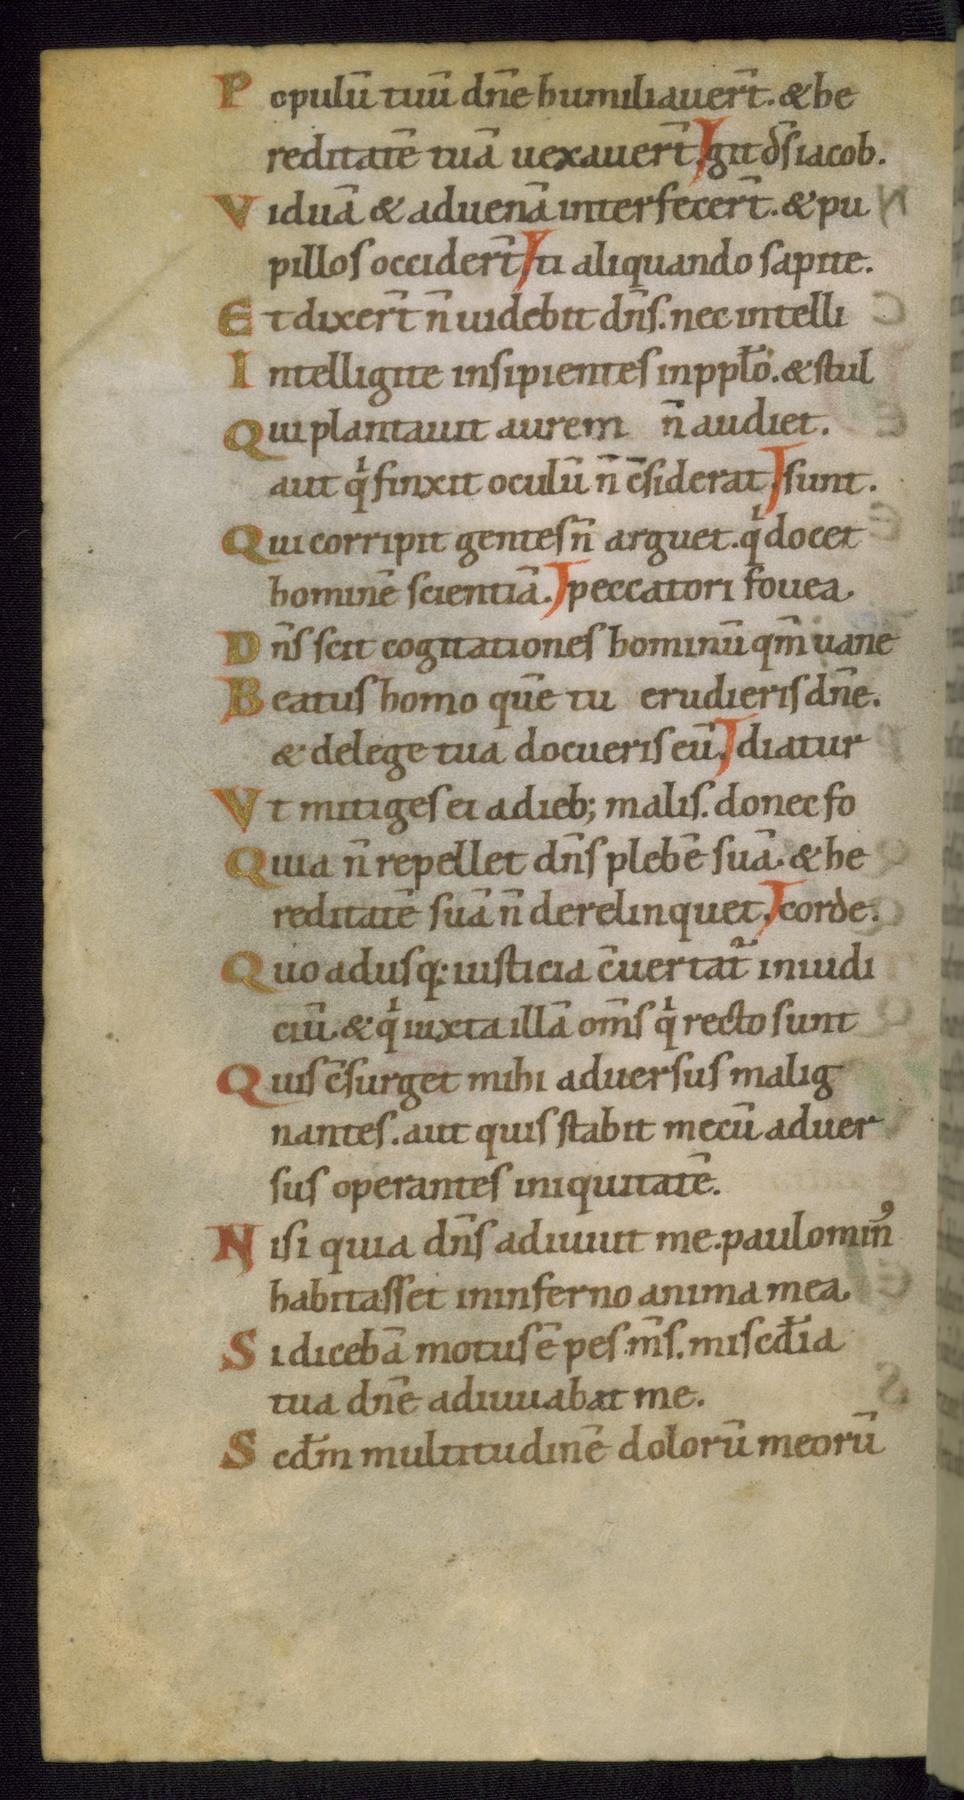 Populū tuū dn̄e humiliauer̄t. & he
reditatē tuā uexauer̄t. git d̄s iacob.
Viduā & aduenā interfecer̄t. & pu
pillos occider̄t. ti aliquando sapite.
Et dixer̄t n̄ uidebit dn̄s. nec intelli
Intelligite insipientes in ppl̄o. & stul
Qui plantauit aurem n̄ audiet.
aut qͥ finxit oculū n̄ c̄siderat. sunt.
Qui corripit gentes n̄ arguet. qͥ docet
hominē scientiā. peccatori fouea.
Dn̄s scit cogitationes hominū qm̄ uane
Beatus homo quē tu erudieris dn̄e.
& de lege tua docueris eū. diatur
Vt mitiges ei a dieb; malis. donec fo
Quia n̄ repellet dn̄s plebē suā. & he
reditatē suā n̄ derelinquet. corde.
Quo adusq; iusticia c̄uertat᷑ in iudi
ciū. & qͥ iuxta illā om̄s qͥ recto sunt
Quis c̄surget mihi aduersus malig
nantes. aut quis stabit mecū aduer
sus operantes iniquitatē.
Nisi quia dn̄s adiuuit me. paulomin̄ꝰ
habitasset in inferno anima mea.
Si dicebā motus ē pes m̄s. misc̄dia
tua dn̄e adiuuabat me.
Sc̄dm multitudinē dolorū meorū